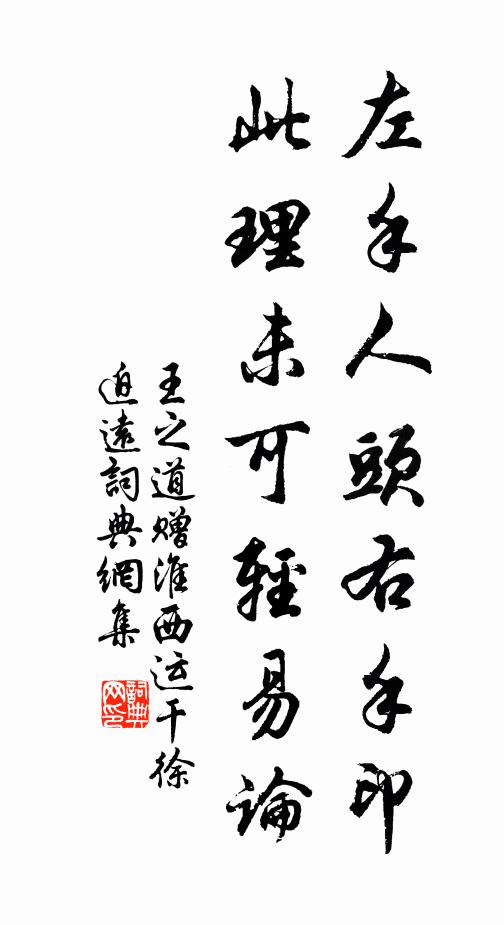 左手人頭右手印
此理未可輕易論
王之道赠淮西运干徐
逈遠詞典網集
詞典
网印